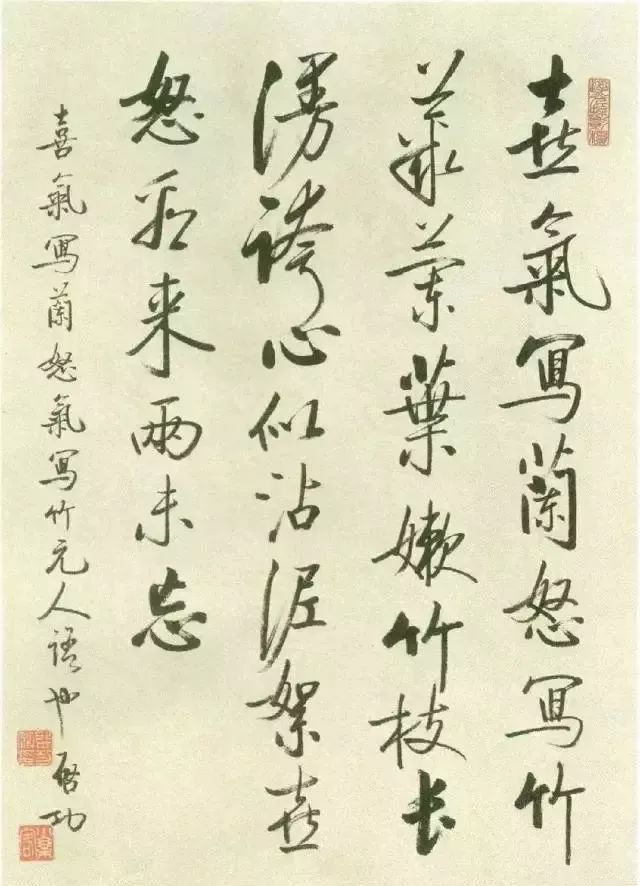 喜氣寫蘭怒寫竹
藂蘭葉嫩竹枝長
漫誇心似沾泥絮喜
怒看来兩未忘
喜氣寫蘭怒氣寫竹元人語也 啓功